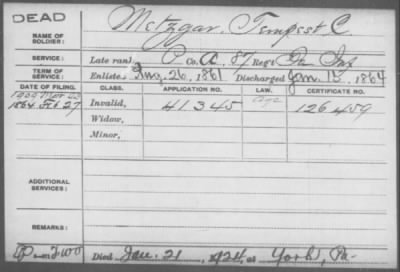 DEAD
NAME OF SOLDIER: Metzgar, Tempest C.
SERVICE: Late rank, P Co. A, 87 Reg't Pa Inf
TERM OF SERVICE: Enlisted Aug. 26, 1861 Discharged Jan. 15, 1864
DATE OF FILING. CLASS. APPLICATION NO. LAW. CERTIFICATE NO.
1864 Feb 27 Invalid, 41345 126459
Widow,
Minor,
ADDITIONAL SERVICES:
REMARKS:
Died Jan. 21, 1924, at York, Pa-